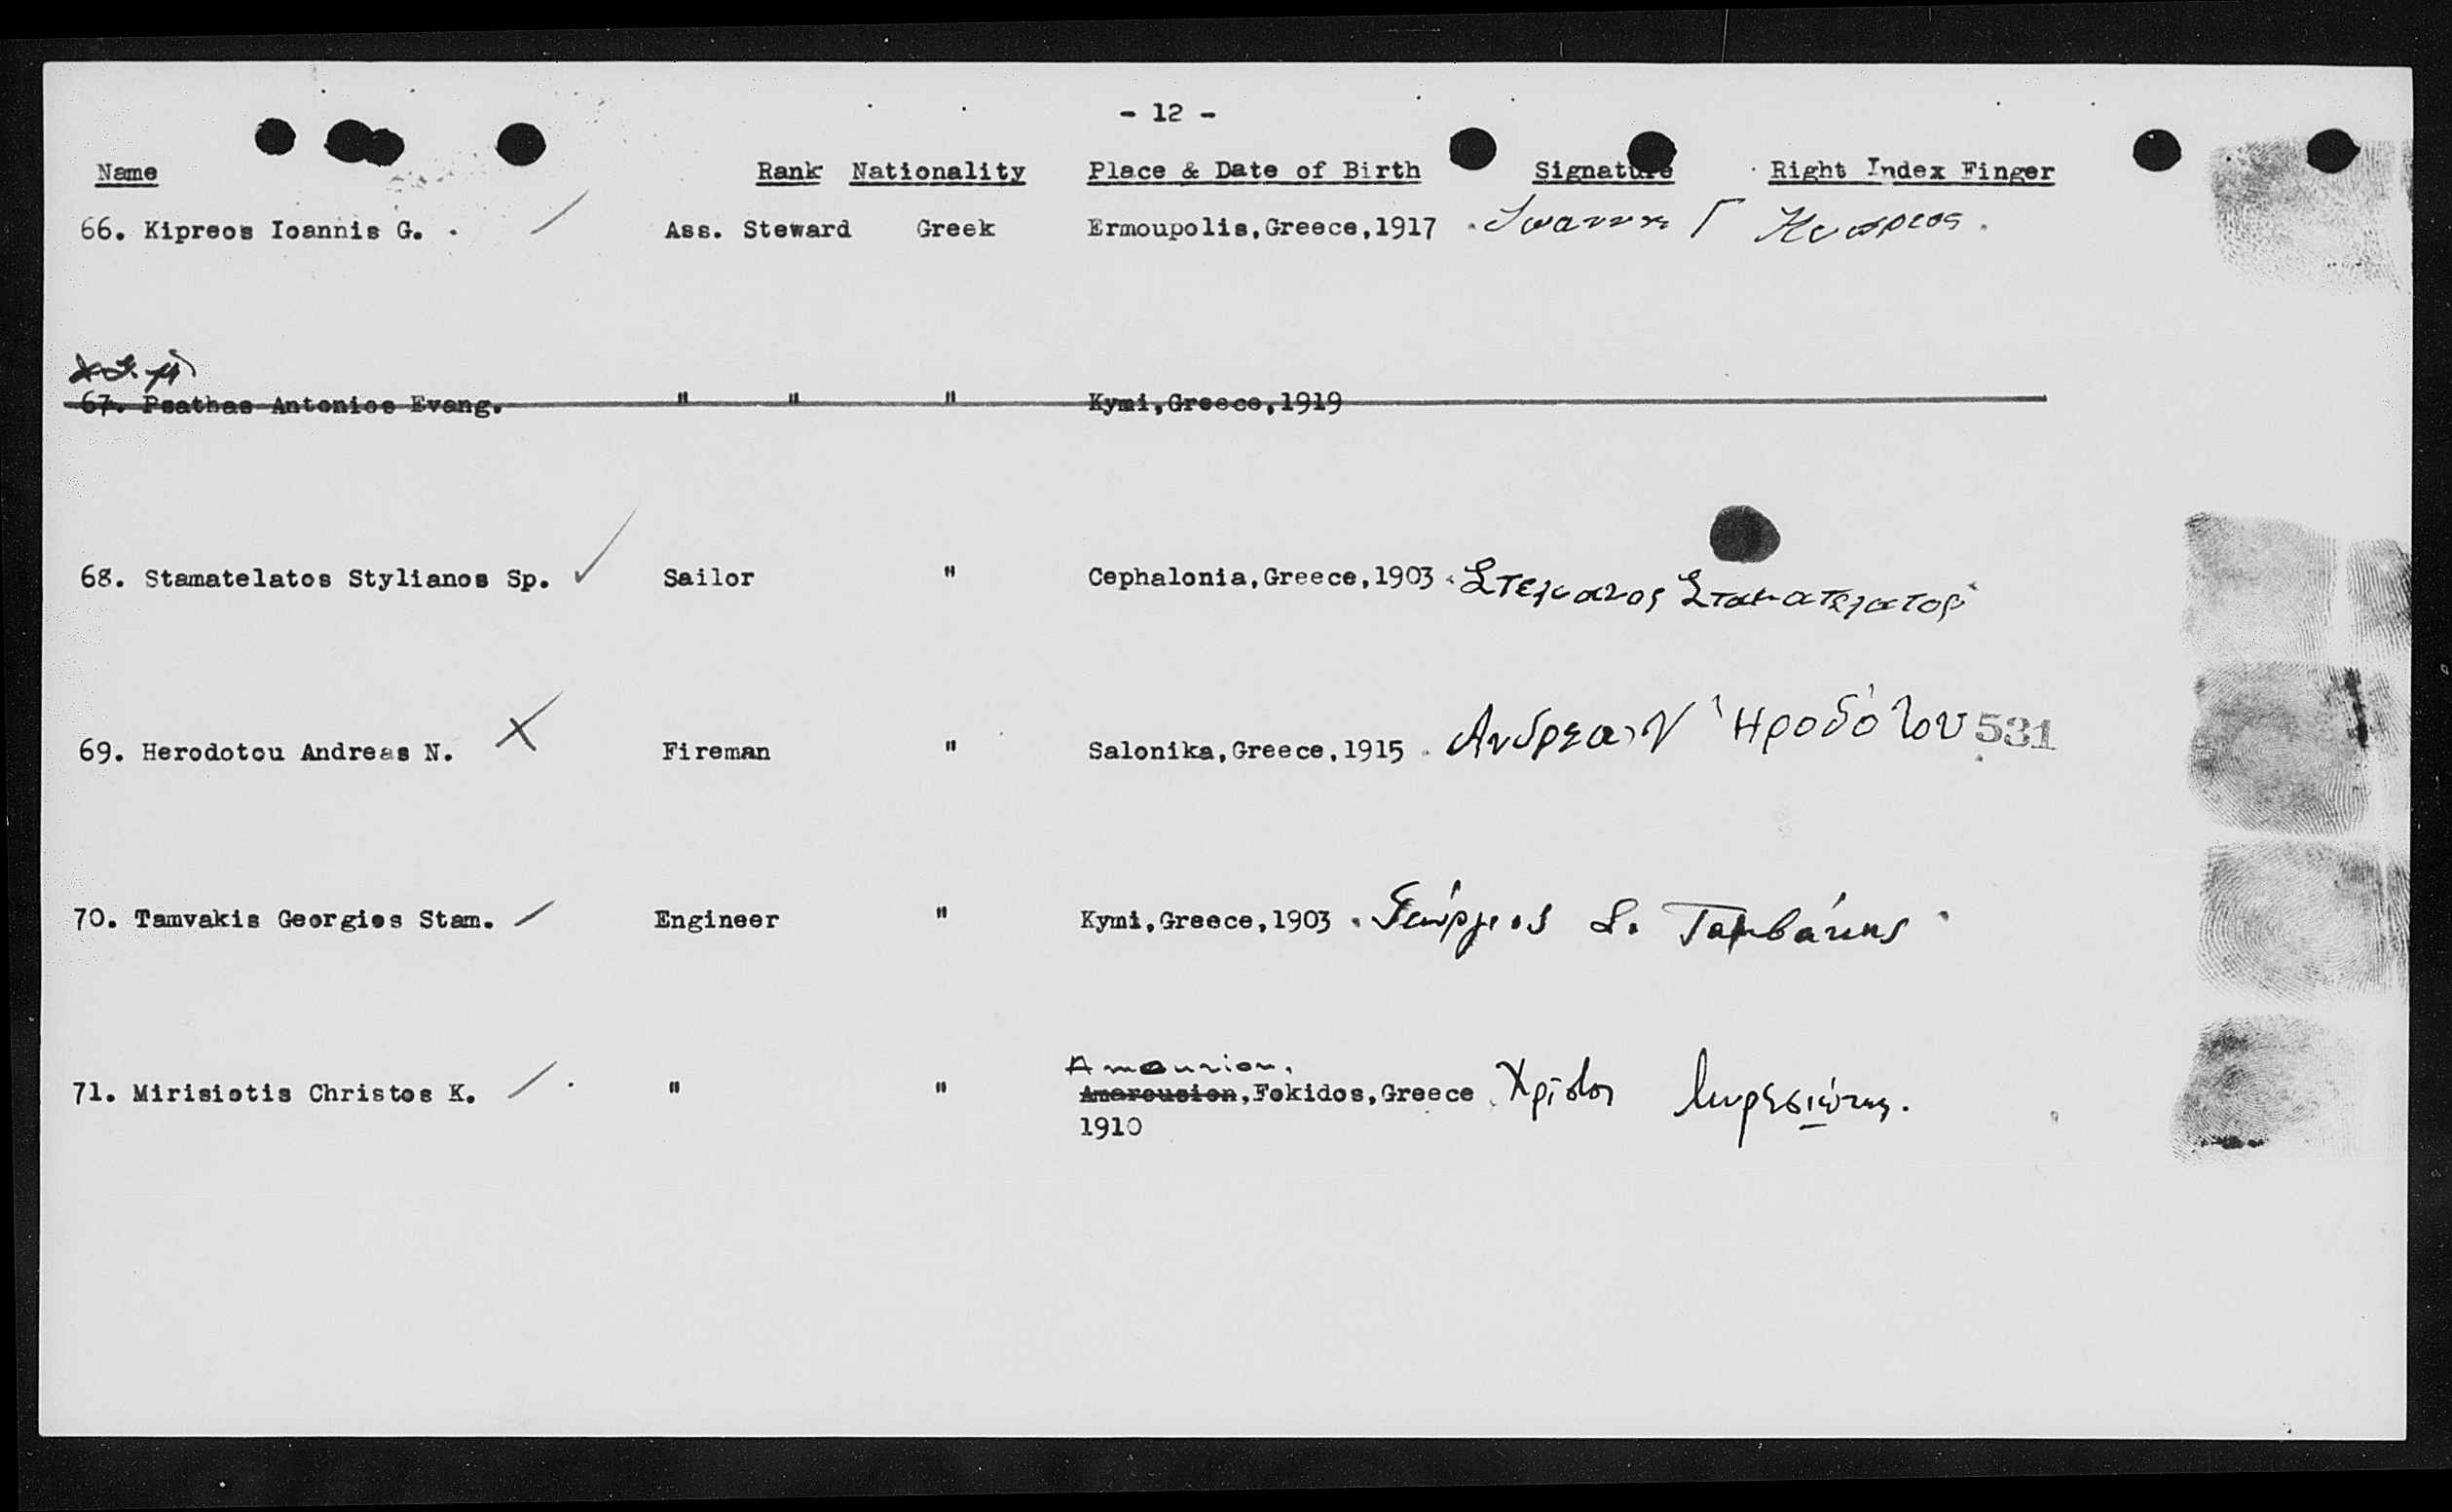 - 12 -
Name Rank Nationality Place & Date of Birth Signature Right Index Finger
66. Kipreos Ioannis G. Ass. Steward Greek Ermoupolis,Greece,1917 Ιωαννης Γ Κυπρεος
67. Psathas Antonios Evang. " " " Kymi,Greece,1919
68. Stamatelatos Stylianos Sp. Sailor " Cephalonia,Greece,1903 Στελιανος Σταματελατος
69. Herodotou Andreas N. Fireman " Salonika,Greece,1915 Ανδρεας Ν Ἡροδότου 531
70. Tamvakis Georgios Stam. Engineer " Kymi,Greece,1903 Γεώργιος Σ. Ταμβάκης
Amourion,
71. Mirisiotis Christos K. " " Amarousion,Fokidos,Greece Χρίστος Μυρεσιώτης.
1910